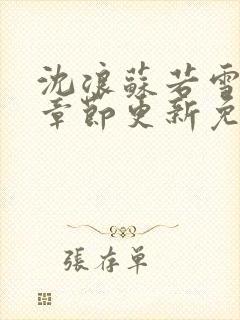 沈浪蘇若雪
章節更新免
張存單